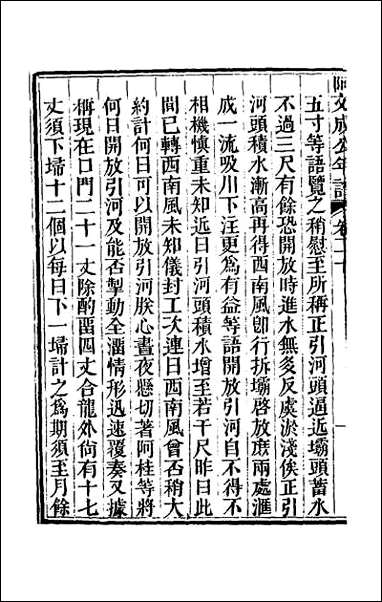 阿文成公年譜 卷二十
五寸等語覽之稍慰至所稱正引河頭逼近壩頭蓄水
不過三尺有餘恐開放時進水無多反虞淤淺俟正引
河頭積水漸高再得西南風卽行拆壩啓放庶兩處滙
成一流吸川下注更爲有益等語開放引河自不得不
相機愼重未知近日引河頭積水增至若干尺昨日此
間已轉西南風未知儀封工次連日西南風曾否稍大
約計何日可以開放引河朕心晝夜懸切著阿桂等將
何日開放引河及能否掣動全溜情形迅速覆奏又據
稱現在口門二十一丈除酌留四丈合龍外尙有十七
丈須下埽十二個以每日下一埽計之爲期須至月餘